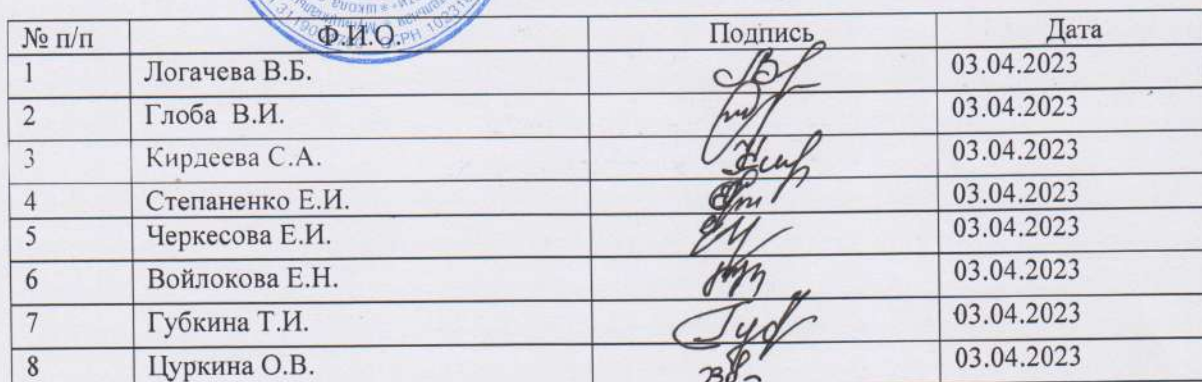 № п/п Ф.И.О. Подпись Дата
1 Логачева В.Б. 03.04.2023
2 Глоба В.И. 03.04.2023
3 Кирдеева С.А. 03.04.2023
4 Степаненко Е.И. 03.04.2023
5 Черкесова Е.И. 03.04.2023
6 Войлокова Е.Н. 03.04.2023
7 Губкина Т.И. 03.04.2023
8 Цуркина О.В. 03.04.2023